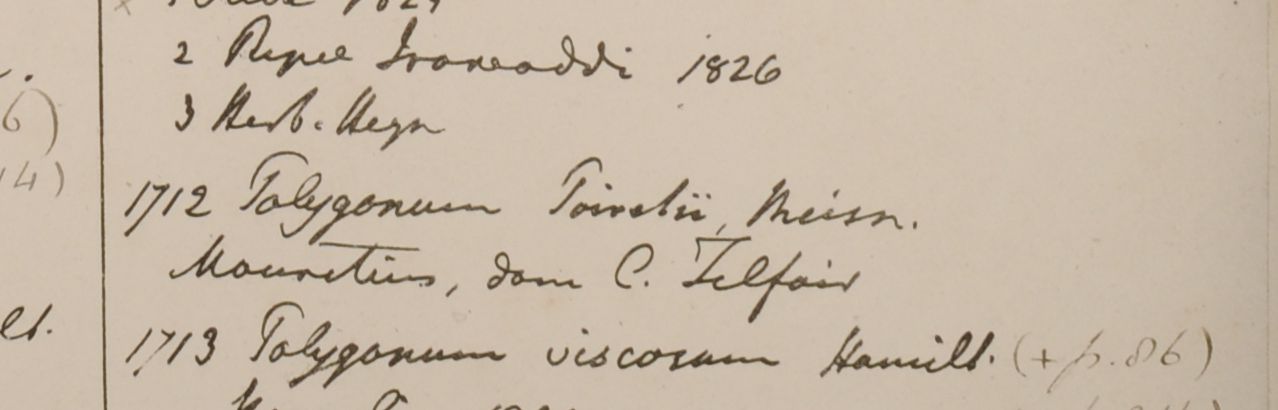 2 Ripæ Irawaddi 1826
3 Herb. Heyn
6)
14)
1712 Polygonum Poiretii, Meisn.
Mauritius, dom C. Telfair
lt.
1713 Polygonum viscosum Hamilt. (+ p. 86)